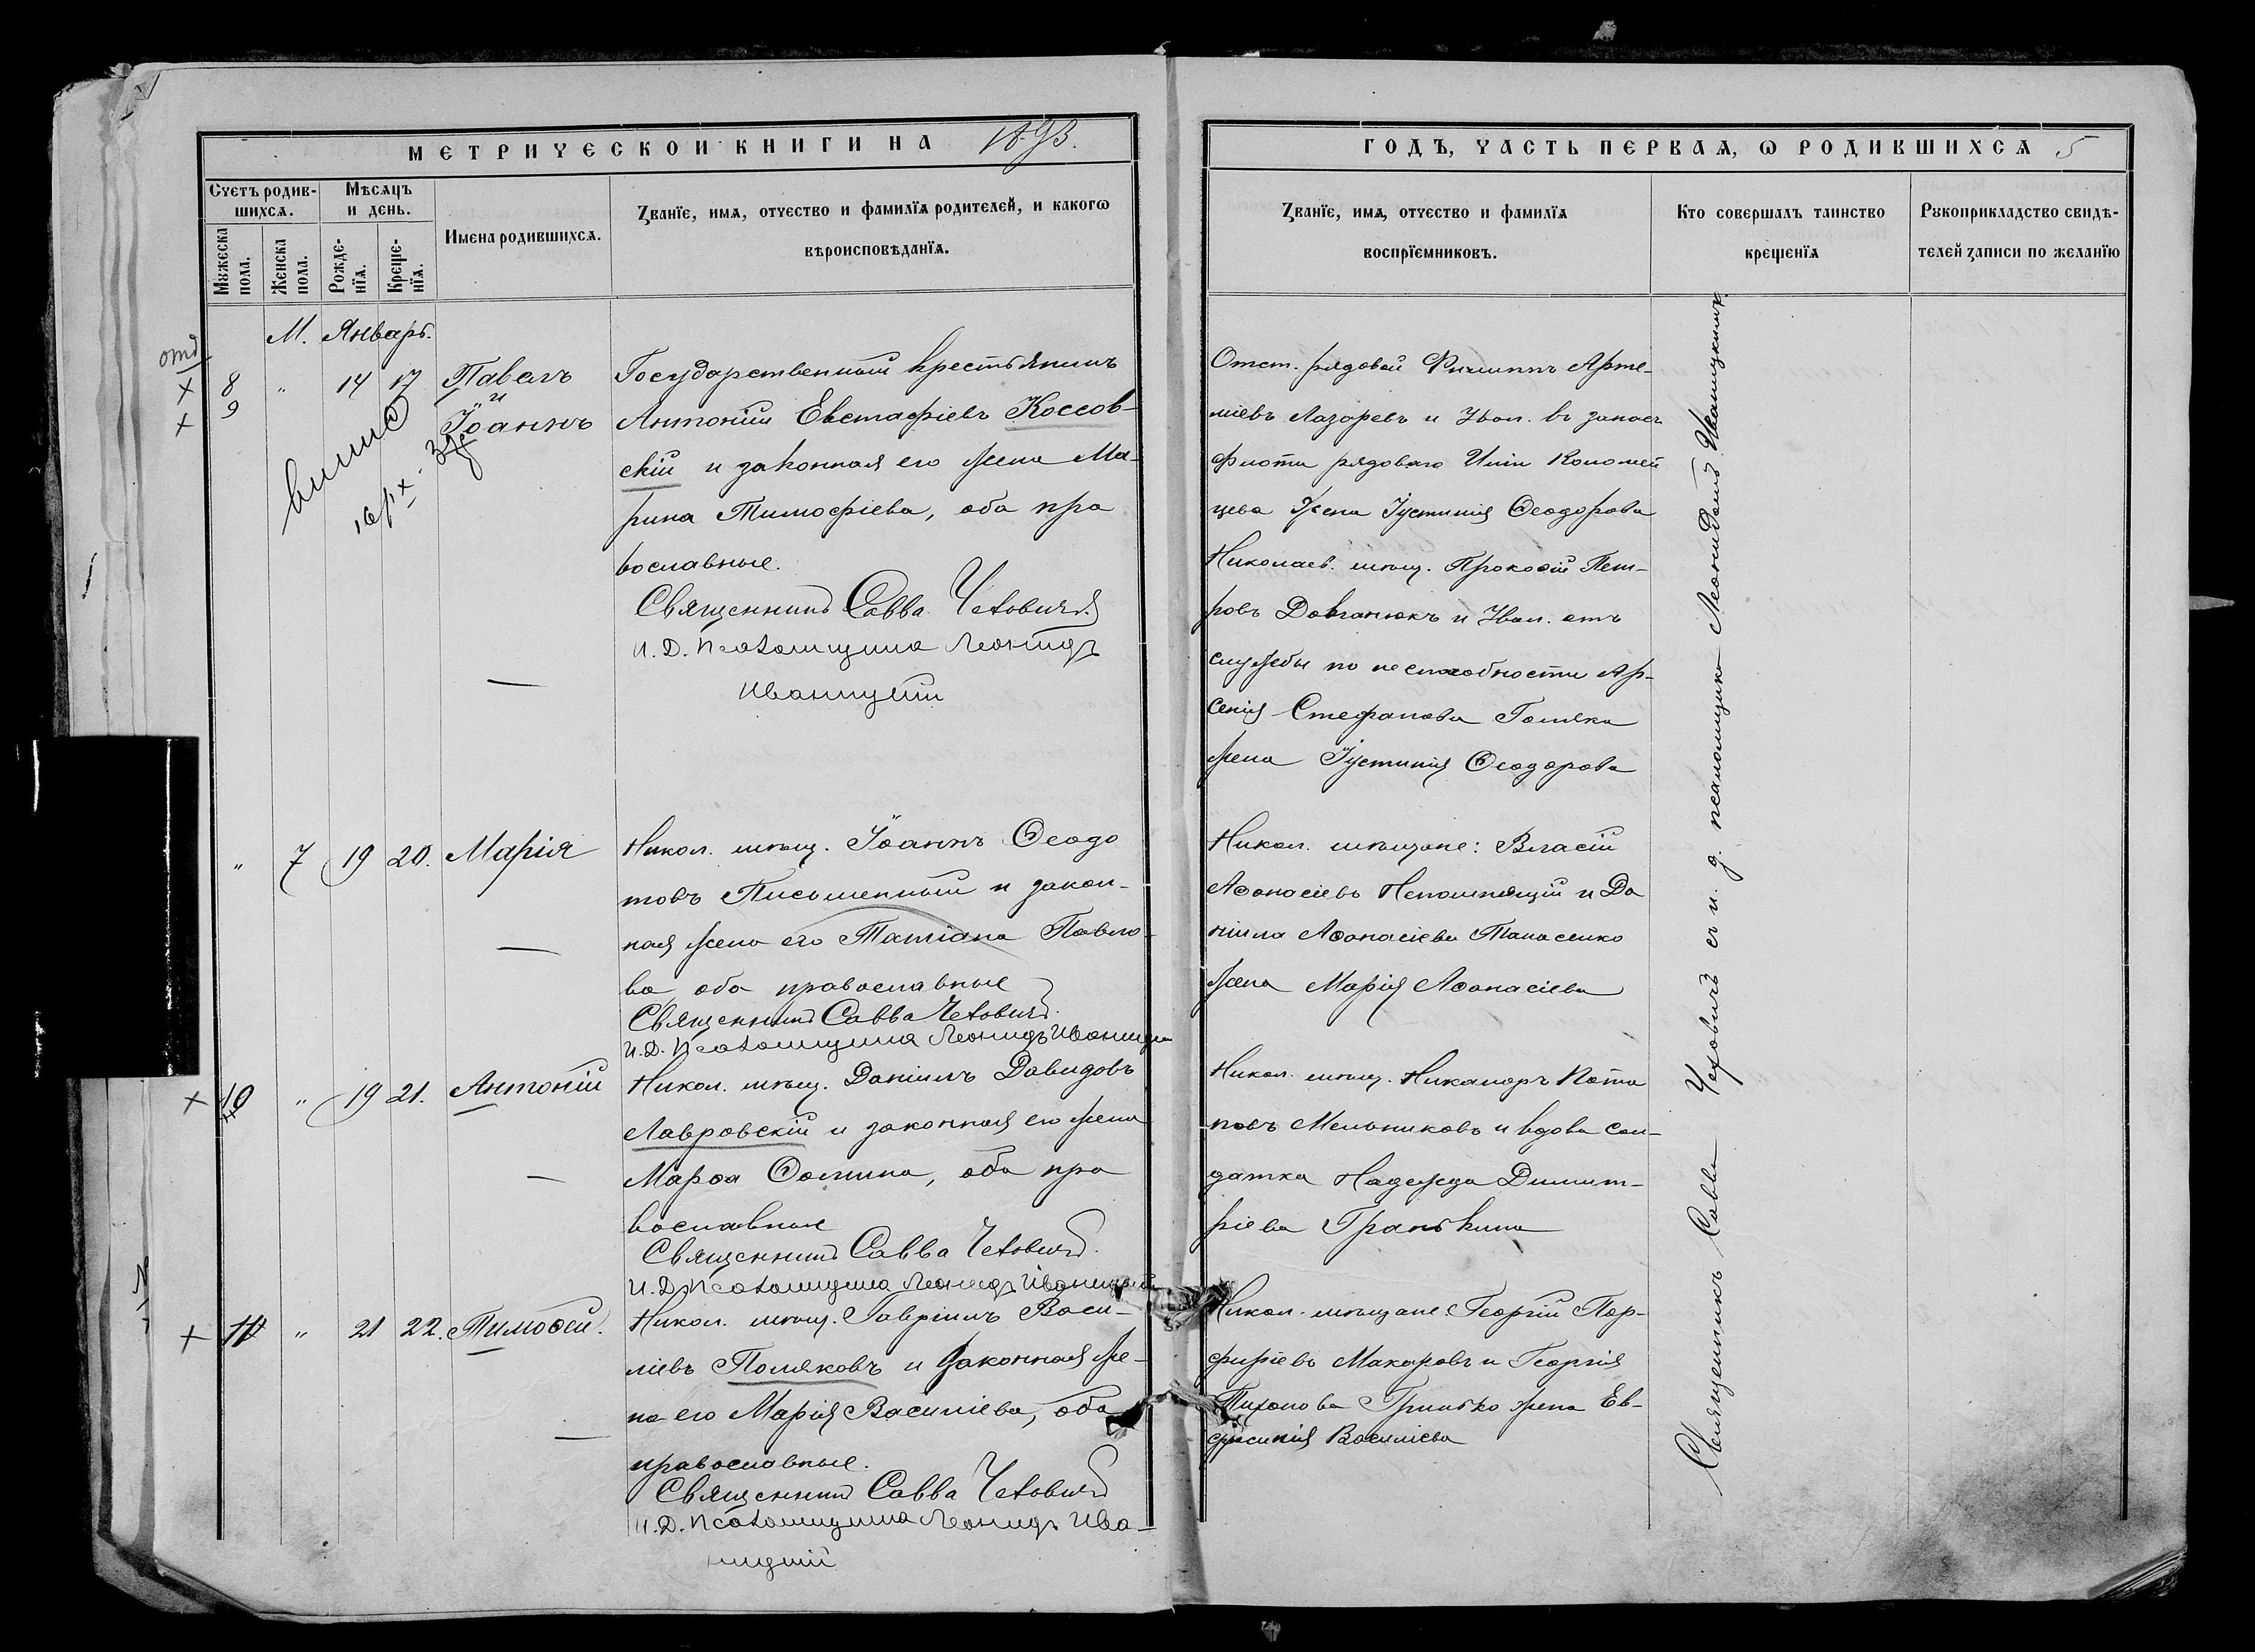 МЕТРИЧЕСКОЙ КНИГИ НА 1893.
Счетъ родив-
шихся.
Мѣсяцъ
и день.
Мужеска
пола.
Женска
пола.
Рожде-
нїя.
Креще-
нїя.
Имена родившихся.
Званїе, имя, отчество и фамилїя родителей, и какогѡ
вѣроисповѣданїя.
М. Январь.
8 " 14 17 Павелъ
и
9 Іоаннъ
Государственный крестьянинъ
Антоній Евстафіевъ Коссов-
скій и законная его жена Ма-
рина Тимофіева, оба пра
вославные.
Священникъ Савва Чеховичъ
И. Д. Псаломщика Леонидъ
Иваницкій
" 7 19 20. Марія
Никол. мѣщ. Іоаннъ Ѳеодо
товъ Письменный и закон-
ная жена его Татіана Павло-
ва оба православные
Священникъ Савва Чеховичъ.
И. Д. Псаломщика Леонидъ Иваницкій
10 " 19 21. Антоній
Никол. мѣщ. Даніилъ Давидовъ
Лавровскій и законная его жена
Марѳа Ѳомина, оба пра
вославные
Священникъ Савва Чеховичъ.
И. Д. Псаломщика Леонидъ Иваницкій
11 " 21 22. Тимоѳей.
Никол. мѣщ. Гавріилъ Васи-
ліевъ Поляковъ и законная же-
на его Марія Василіева, оба
православные.
Священникъ Савва Чеховичъ
И. Д. Псаломщика Леонидъ Ива-
ницкій
ГОДЪ, ЧАСТЬ ПЕРВАЯ, Ѡ РОДИВШИХСЯ 5
Званїе, имя, отчество и фамилїя
воспрїемниковъ.
Кто совершалъ таинство
крещенїя
Рукоприкладство свидѣ-
телей записи по желанїю
Отст. рядовой Филиппъ Арте-
міевъ Лазаревъ и Увол. въ запасъ
флота рядового Иліи Коломей
цева жена Іустинія Ѳеодорова
Николаев. мѣщ. Прокофій Пет-
ровъ Довганюкъ и Увол. отъ
службы по неспособности Ар-
сенія Стефанова Голяка
жена Іустинія Ѳеодорова
Никол. мѣщане: Власій
Аѳанасіевъ Непомнящій и Да
ніила Аѳанасіева Танасенко
жена Марія Аѳанасіева
Никол. мѣщ. Никаноръ Пота
повъ Мельниковъ и вдова сол-
датка Надежда Димит-
ріева Гранькина
Никол. мѣщане Георгій Пор-
фиріевъ Макаровъ и Георгія
Тихонова Гринько жена Ев-
фросинія Василіева
Священникъ Савва Чеховичъ съ и. д. псаломщика Леонидомъ Иваницкимъ.